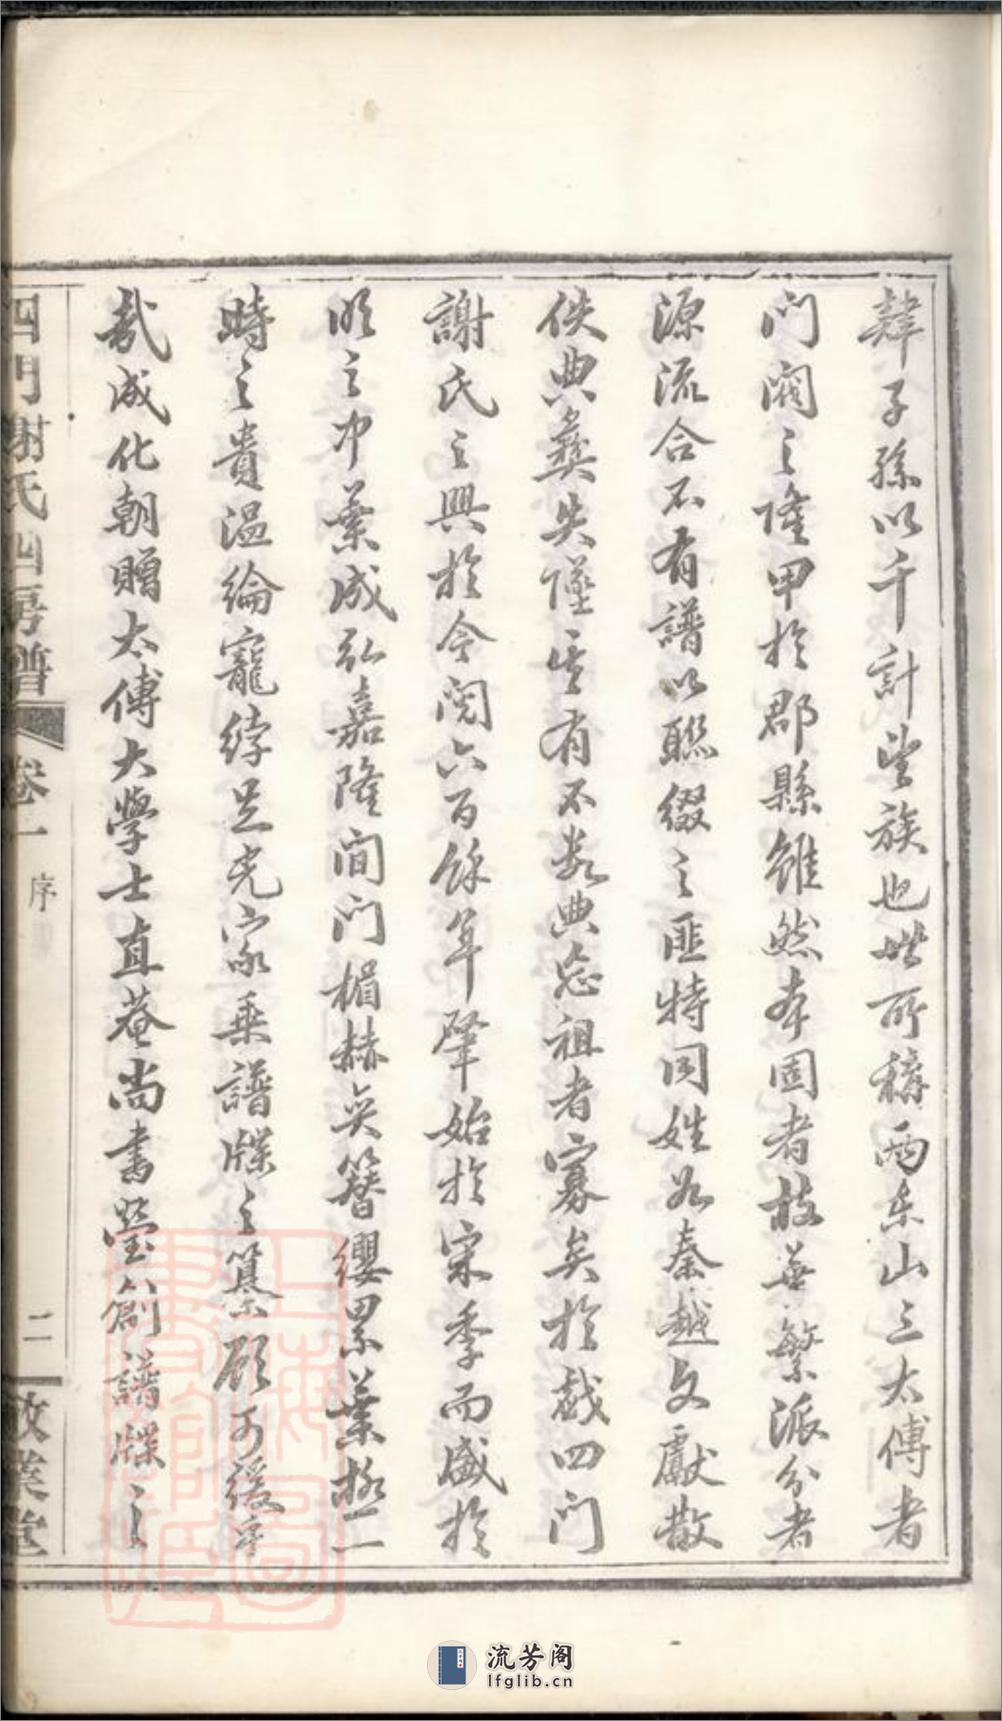 肄子孫以千計望族也世所稱兩东山三太傅者
门阀之隆甲於郡縣雖然本固者枝华繁派分者
源流合不有譜以聯綴之匪特同姓如秦越文獻散
佚典彝失墜其有不数典忘祖者寡矣於戱四门
謝氏之興於今閲六百餘年肇始於宋季而盛於
明之中葉成弘嘉隆间门楣赫奕簪纓累葉極一
時之貴温綸寵綍足光家乘譜牒之纂顧可缓乎
哉成化朝贈太傅大學士直菴尚書瑩創譜牒之
四門謝氏四房譜
卷一
序
二
敬業堂
上海圖書館藏
流芳阁
lfglib.cn